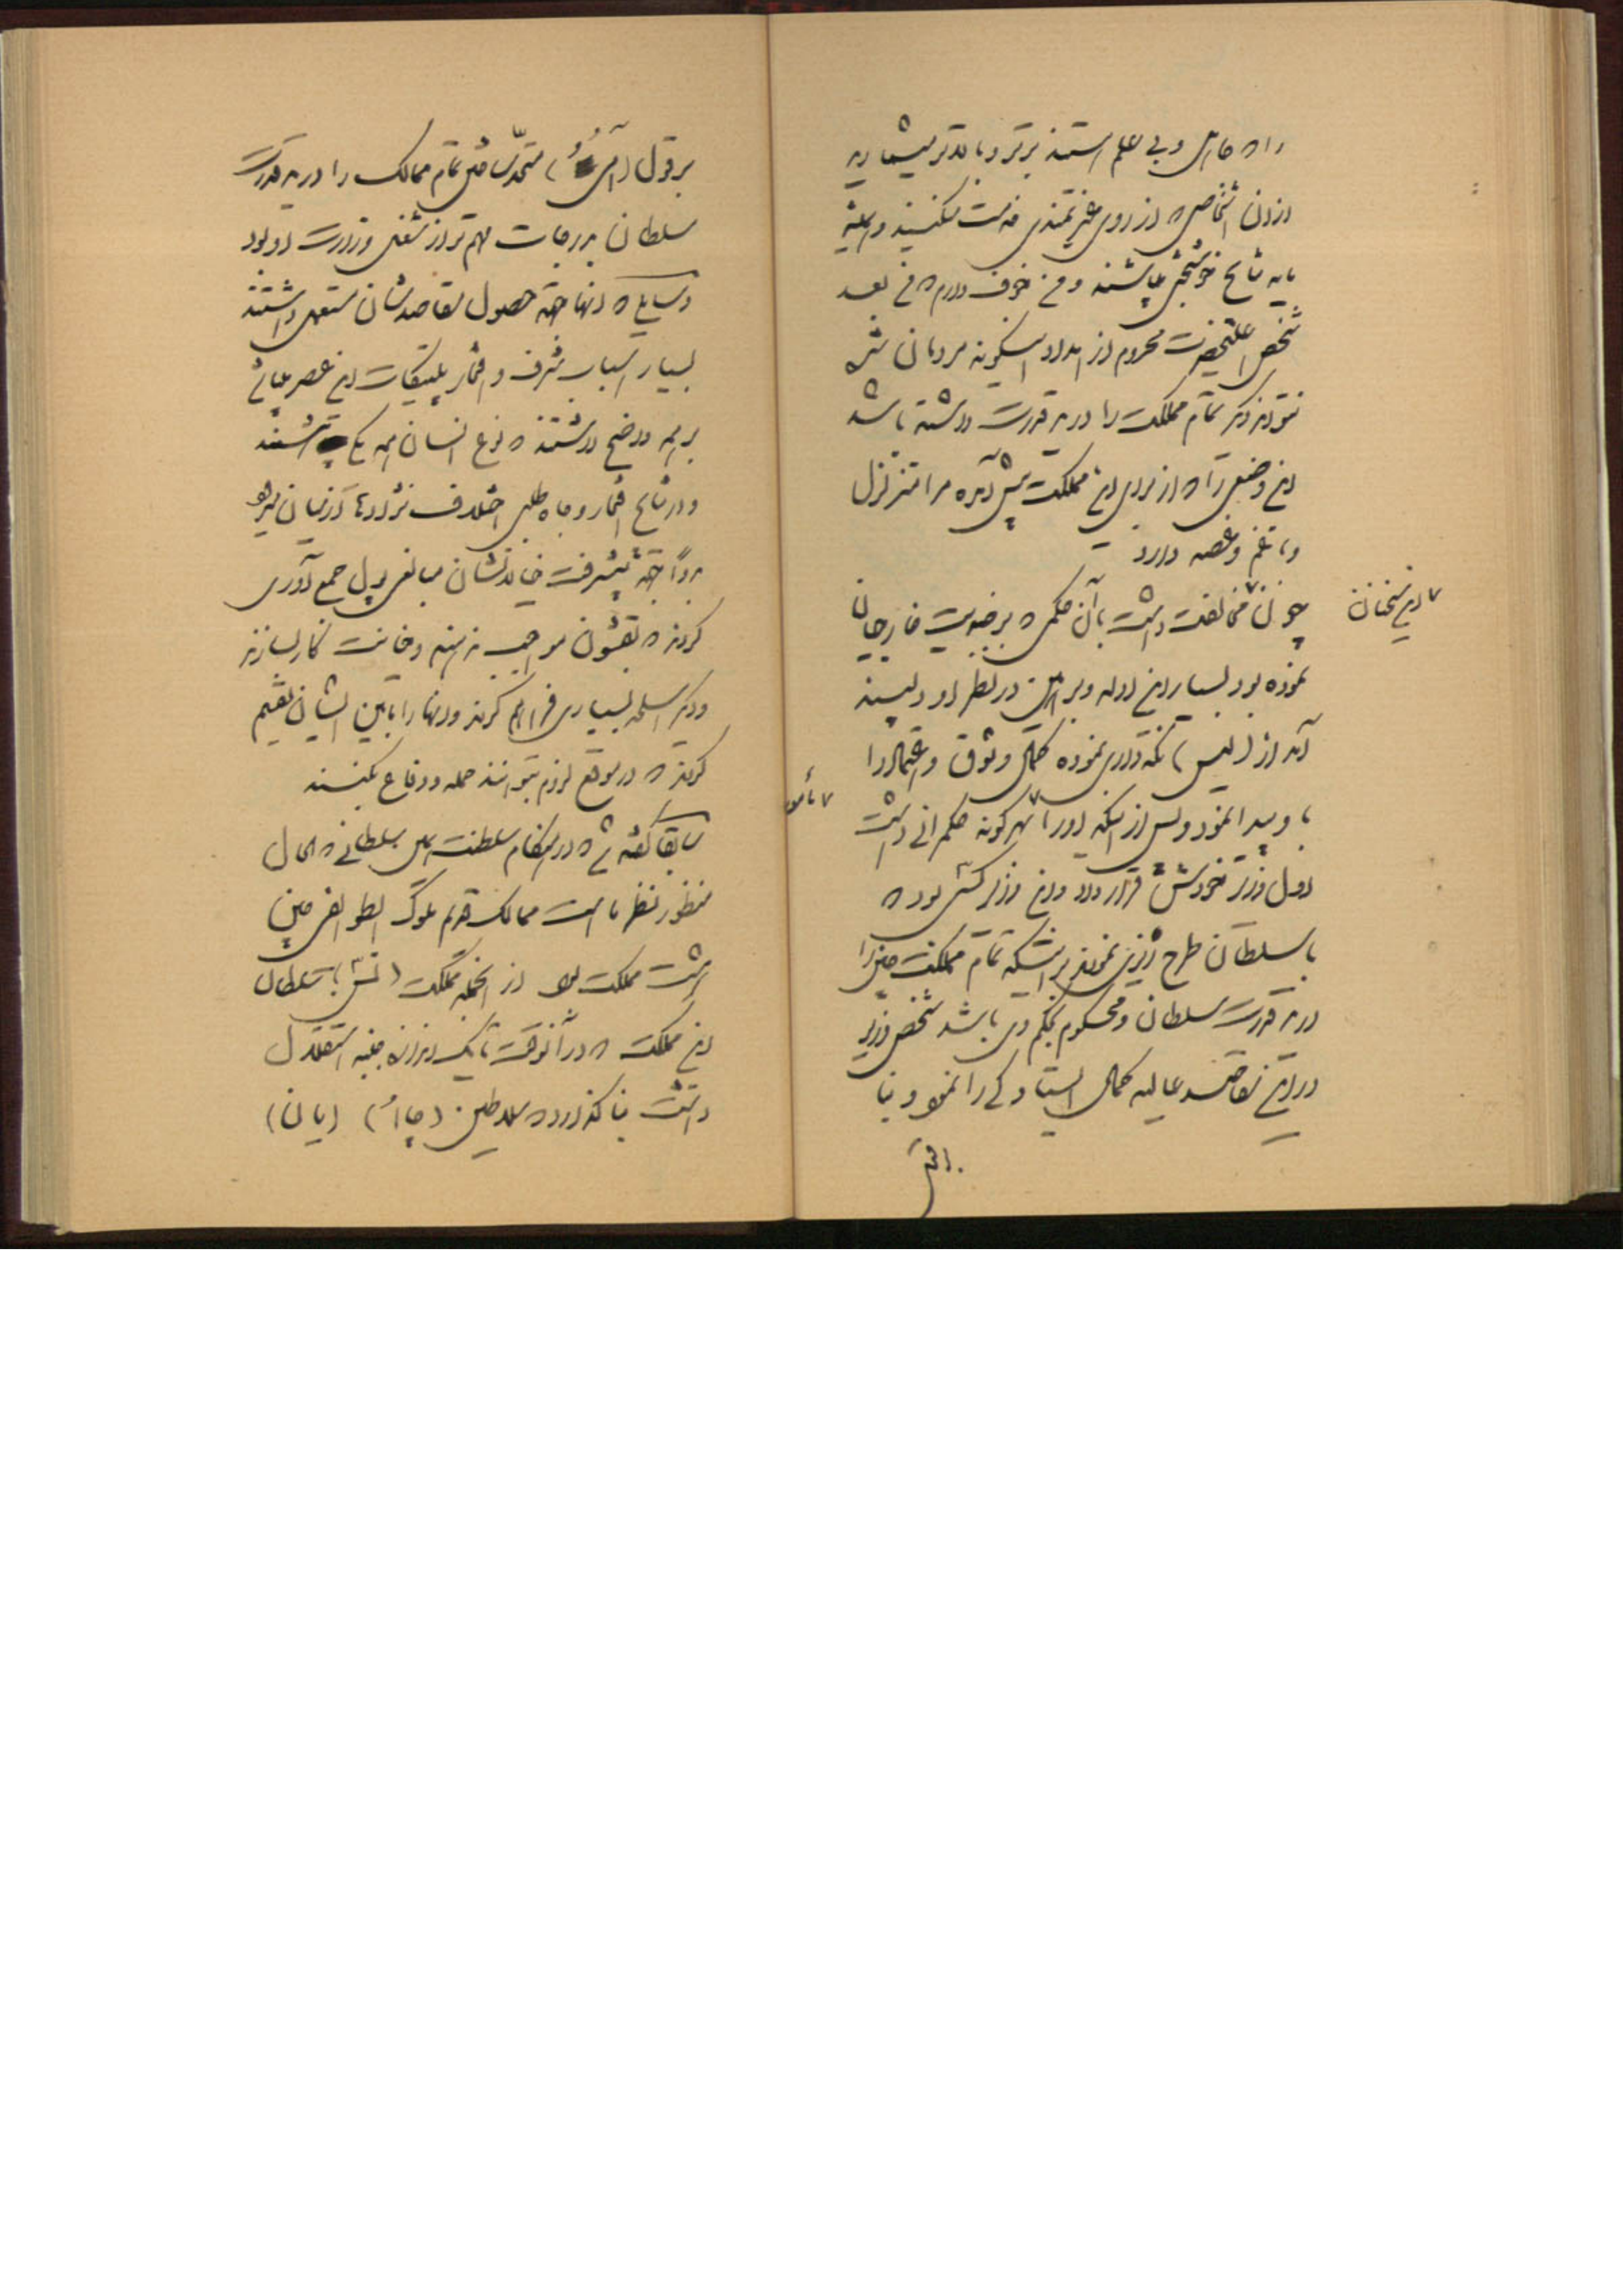 را که جاهل و بی علم هستند برتر و بالاتر میشمارید
از آن اشخاصی که از روی هنرمندی خدمت میکنند و همیشه
باید نتایج خوشبختی باشند و من خوف دارم که من بعد
شخص اعلیحضرت محروم از امداد اینگونه مردمان شده
نتواند دیگر تمام مملکت را در ید قدرت داشته باشد
این وضعی را که از برای این مملکت پیش آمده مرا متزلزل
و با غم و غصه دارد
چون این سخنان مخالفت داشت با آن حکمی که بر ضدیت خارجیان
نموده بود بسیار این ادله و براهین در نظر او دلپسند
آمد از (لیس) نگهداری نموده کمال وثوق و اعتماد را
باو پیدا نمود و پس از آنکه او را مأمور بهرگونه حکمرانی داشت
اول وزیر خودش قرار داد و این وزیر کسی بود که
با سلطان طرح ریزی نمودند برای اینکه تمام مملکت چین را
در ید قدرت سلطان و محکوم بحکم وی باشد شخص وزیر
در این مقاصد عالیه کمال ایستادگی را نمود و بنا
بر قول متحد ساختن تمام ممالک را در ید قدرت
سلطان بدرجات مهم تر از شغل وزارت او بود
وسایلی که آنها جهة حصول مقاصدشان مستعمل داشتند
بسیار اسباب شرف و افتخار پلتیکات این عصر
بر همه واضح داشتند که نوع انسان همه یکی هستند
و در نتایج افتخار و جاه طلبی اختلاف نژادها در میان نبود
جهة پیشرفت خیالاتشان مبالغی پول جمع آوری
کردند که بقشون مواجب بدهند و خیانت کار بسازند
و دیگر اسلحه بسیاری فراهم کردند و آنها را مابین ایشان تقسیم
کردند که در موقع لزوم بتوانند حمله و دفاع بکنند
سابقا گفته شد که در هنگام سلطنت این سلطانی که الحال
منظور نظر ما است ممالک قدیم ملوک الطوایفی چین
هشت مملکت بود از آنجمله مملکت سلطان
این مملکت که در آنوقت تا یک اندازه جنبه استقلال
داشت بنا گذارد که سلاطین (چااُ) (یان)